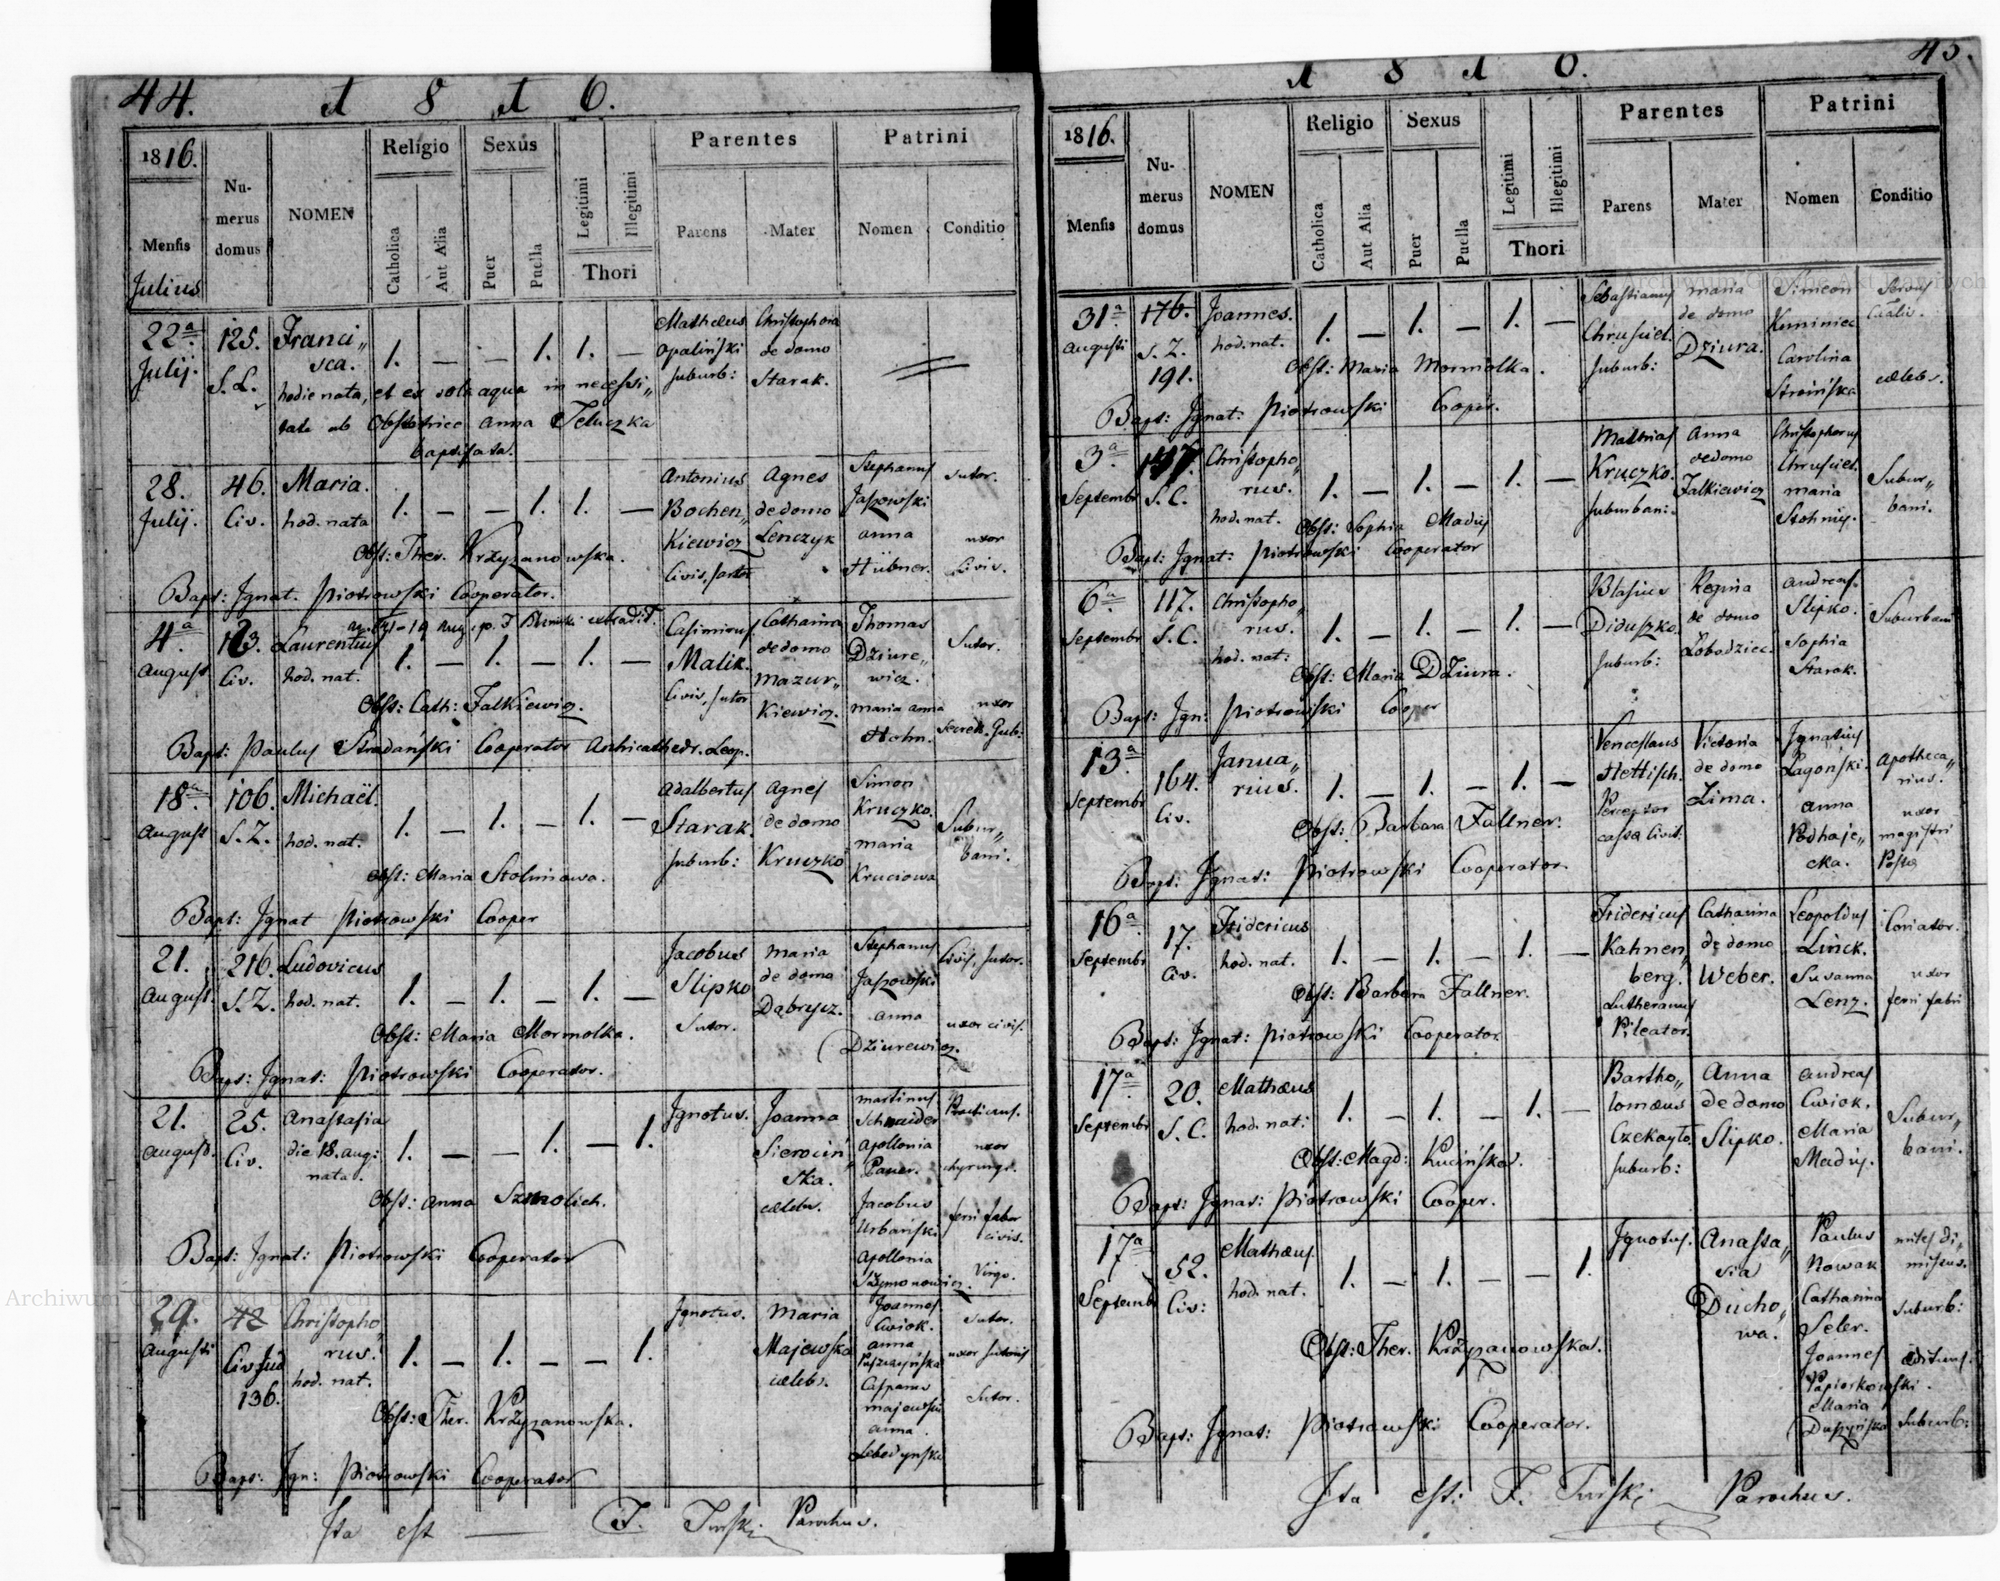 44. 1 8 1 6.
1816.
Mensis
Julius
Numerus domus
NOMEN
Religio
Catholica
Aut Alia
Sexus
Puer
Puella
Legitimi
Illegitimi
Thori
Parentes
Parens
Mater
Patrini
Nomen
Conditio
22a Julij. 125. S.L. Francisca. 1. — — 1. 1. —
hodie nata, et ex sola aqua in necessitate ab Obstetrice Anna Teluczka baptisata.
Mathæus Opaliński suburb:
Christophora de domo Starak.
28. Julij. 46. Civ. Maria. hod. nata 1. — — 1. 1. —
Antonius Bochenkiewicz Civis, sartor
Agnes de domo Lenczyk
Stephanus Jaszowski sutor.
Anna Hübner. uxor Civis.
Obst: Ther. Krzyżanowska.
Bapt: Ignat. Piotrowski Cooperator.
4a August 123. Civ. Laurentius hod. nat. 1. — 1. — 1. —
Casimirus Malik. Civis, sutor
Catharina de domo Mazurkiewicz.
Thomas Dziurewicz. Sutor.
Maria Anna Hohn. uxor Secret. Gub:
Obst: Cath: Falkiewicz.
Bapt: Paulus Stradański Cooperator Archicathedr. Leop.
18a August 106. S.Z. Michaël. hod. nat. 1. — 1. — 1. —
Adalbertus Starak. suburb:
Agnes de domo Kruczko
Simon Kruczko.
Maria Kruciowa
Suburbani.
Obst: Maria Stolniowa.
Bapt: Ignat Piotrowski Cooper
21. August. 216. S.Z. Ludovicus hod. nat. 1. — 1. — 1. —
Jacobus Slipko Sutor.
Maria de domo Dąbrycz.
Stephanus Jaszowski Civis, sutor.
Anna Dziurewicz. uxor civis.
Obst: Maria Mormolka.
Bapt: Ignat: Piotrowski Cooperator.
21. August. 25. Civ. Anastasia die 18. aug: nata. 1. — — 1. — 1.
Ignotus.
Joanna Sierocińska. cælebs.
Martinus Schnaider
Apollonia Pauer. uxor chyrurgi.
Jacobus Urbański ferri faber civis.
Apollonia Szymonowicz. Virgo.
Obst: Anna Szmolich.
Bapt: Ignat: Piotrowski Cooperator
29. Augusti 42 Civ Jud 136. Christophorus. hod. nat. 1. — 1. — — 1.
Ignotus.
Maria Majewska cælebs.
Joannes Cwiok. sutor.
Anna Puszczyńska uxor sutoris
Casparus Majewski Sutor.
Anna Lebedynska
Obst: Ther. Krzyżanowska.
Bapt: Ign: Piotrowski Cooperator
Ita est — F. Turski Parochus.
45. 1 8 1 6.
1816.
Mensis
Numerus domus
NOMEN
Religio
Catholica
Aut Alia
Sexus
Puer
Puella
Legitimi
Illegitimi
Thori
Parentes
Parens
Mater
Patrini
Nomen
Conditio
31a Augusti 176. S.Z. 191. Joannes. hod. nat. 1. — 1. — 1. —
Sebastianus Chrusciel. suburb:
Maria de domo Dziura.
Simeon Keminiec
Carolina Stroińska cælebs.
Obst: Maria Mormolka.
Bapt: Ignat: Piotrowski Cooper.
3a Septembr 147. S.C. Christophorus. hod. nat. 1. — 1. — 1. —
Mathias Kruczko. Suburbani.
Anna de domo Falkiewicz
Christophorus Chrusciel.
Maria Stohnij.
Suburbani.
Obst: Sophia Madij
Bapt: Ignat: Piotrowski Cooperator
6a Septembr 117. S.C. Christophorus. hod. nat: 1. — 1. — 1. —
Blasius Diduszko. suburb:
Regina de domo Lobodziec.
Andreas Slipko.
Sophia Starak.
Suburbani
Obst: Maria Dziura.
Bapt: Ign: Piotrowski Cooper
13a Septembr 164. Civ. Januarius. 1. — 1. — 1. —
Venceslaus Hettisch. Perceptor cassæ Civit:
Victoria de domo Zima.
Ignatius Lagoński. Apothecarius.
Anna Podhajecka. uxor magistri Postæ
Obst: Barbara Fallner.
Bapt: Ignat: Piotrowski Cooperator.
16a Septembr 17. Civ. Fridericus hod. nat. 1. — 1. — 1. —
Fridericus Kahnenberg. Lutheranus Pileator.
Catharina de domo Weber.
Leopoldus Linck. Coriator.
Susanna Lenz. uxor ferri fabri
Obst: Barbara Fallner.
Bapt: Ignat: Piotrowski Cooperator
17a Septembr 20. S.C. Mathæus hod. nat: 1. — 1. — 1. —
Bartholomæus Czekayło. suburb:
Anna de domo Slipko.
Andreas Cwiok.
Maria Madij.
Suburbani.
Obst: Magd: Kucińska.
Bapt: Ignat: Piotrowski Cooper.
17a Septembr 52. Civ: Mathæus. hod. nat. 1. — 1. — — 1.
Ignotus.
Anastasia Duchowa.
Paulus Nowak miles dimissus.
Catharina Seler. suburb:
Joannes Papiorkowski. ædituus.
Maria Duszyńska suburb:
Obst: Ther. Krzyżanowska.
Bapt: Ignat: Piotrowski Cooperator.
Ita est: F. Turski Parochus.
Archiwum Główne Akt Dawnych
Archiwum Główne Akt Dawnych